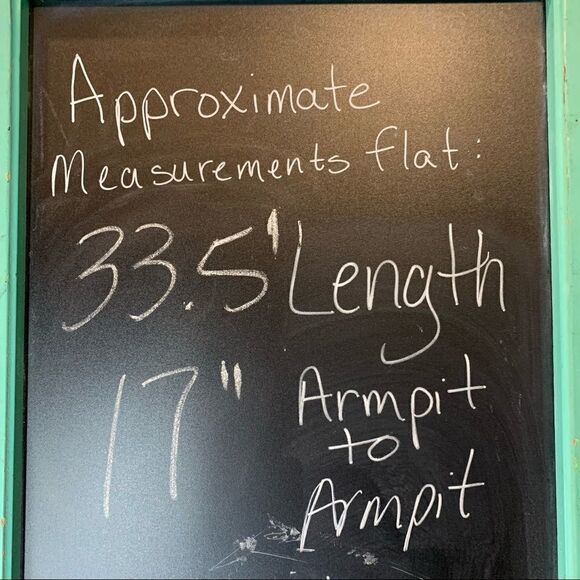 Approximate
Measurements flat:
33.5' Length
17" Armpit
to
Armpit